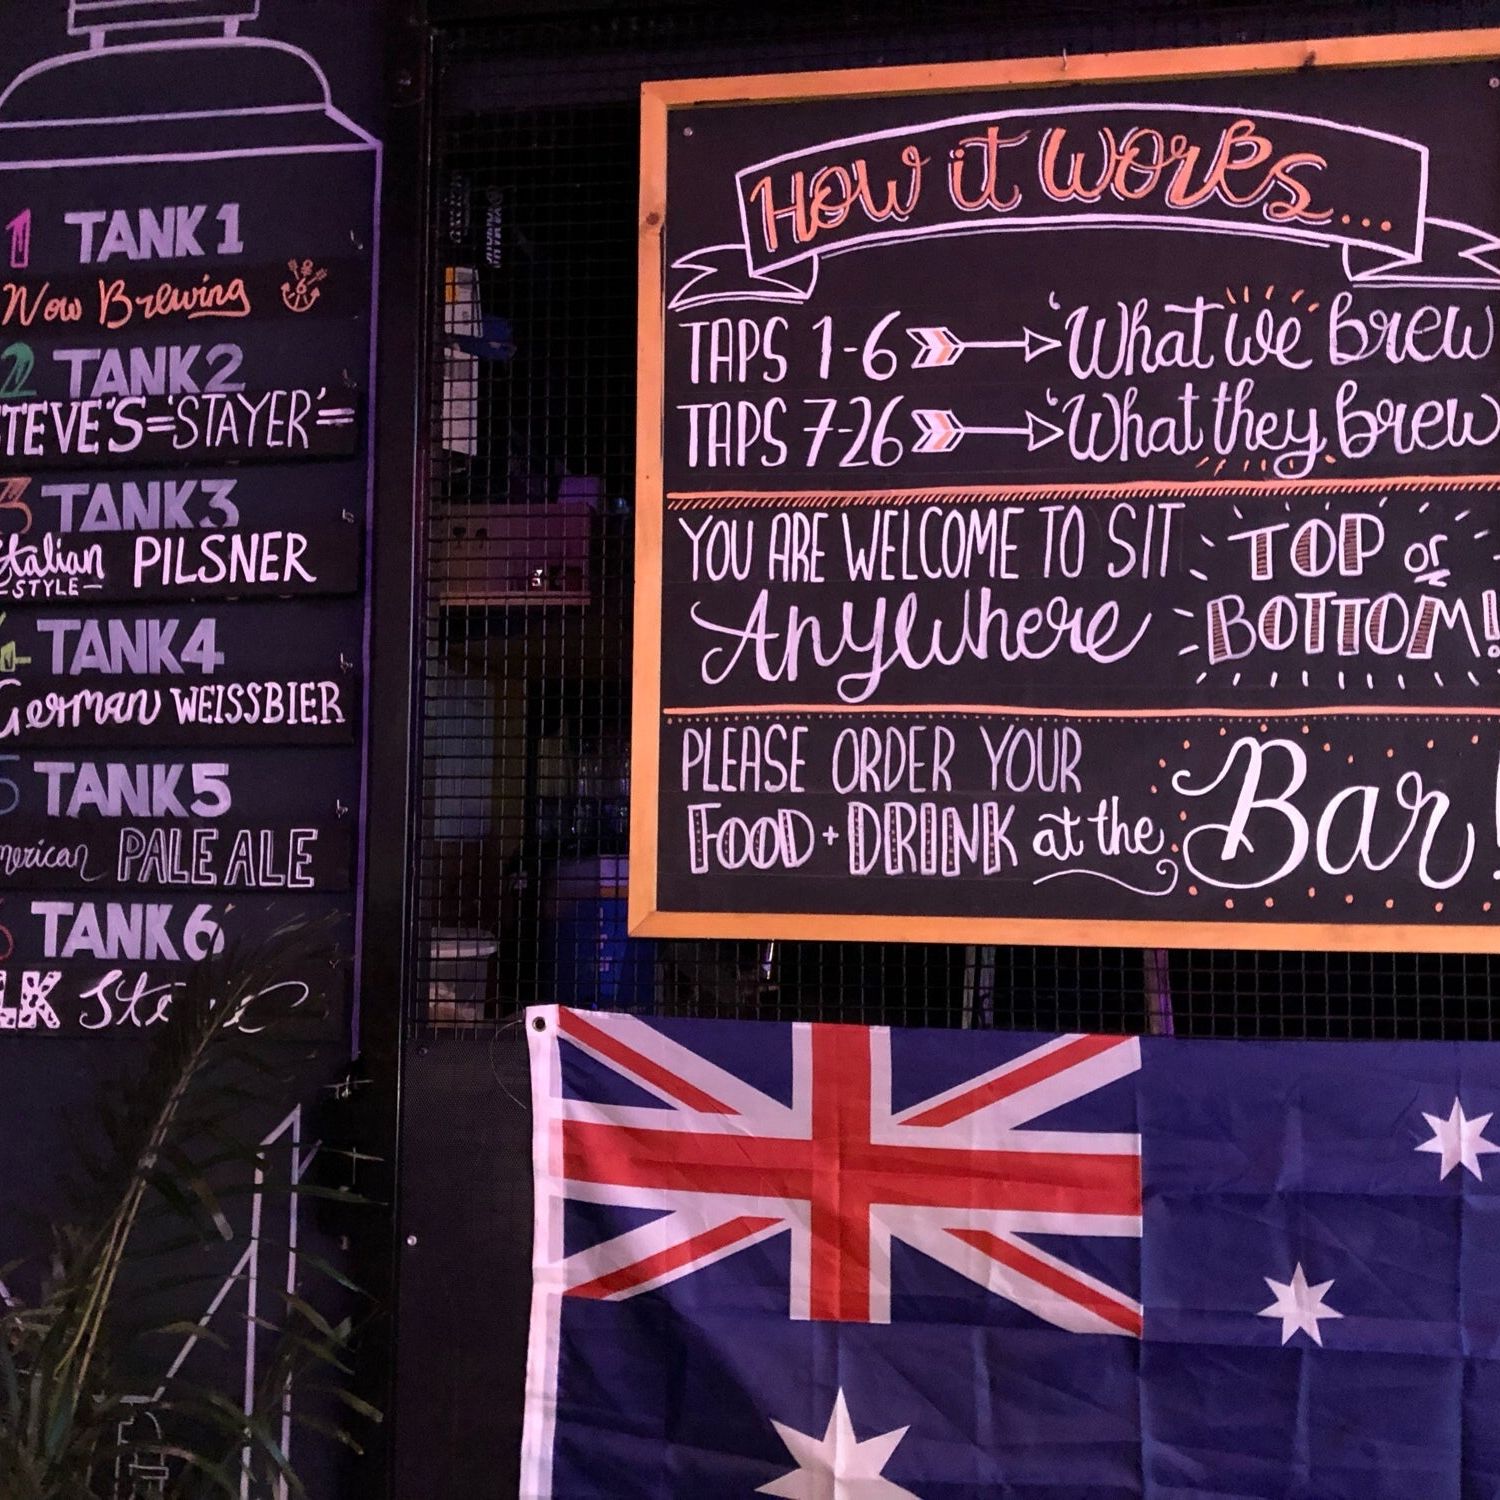 1 TANK 1
Now Brewing
2 TANK 2
STEVE'S='STAYER'=
3 TANK 3
Italian STYLE PILSNER
4 TANK 4
German WEISSBIER
5 TANK 5
American PALE ALE
6 TANK 6
HOW it WORKS...
TAPS 1-6 'What we' brew
TAPS 7-26 'What they brew
YOU ARE WELCOME TO SIT
Anywhere
TOP or
BOTTOM!
PLEASE ORDER YOUR
FOOD + DRINK at the
Bar!